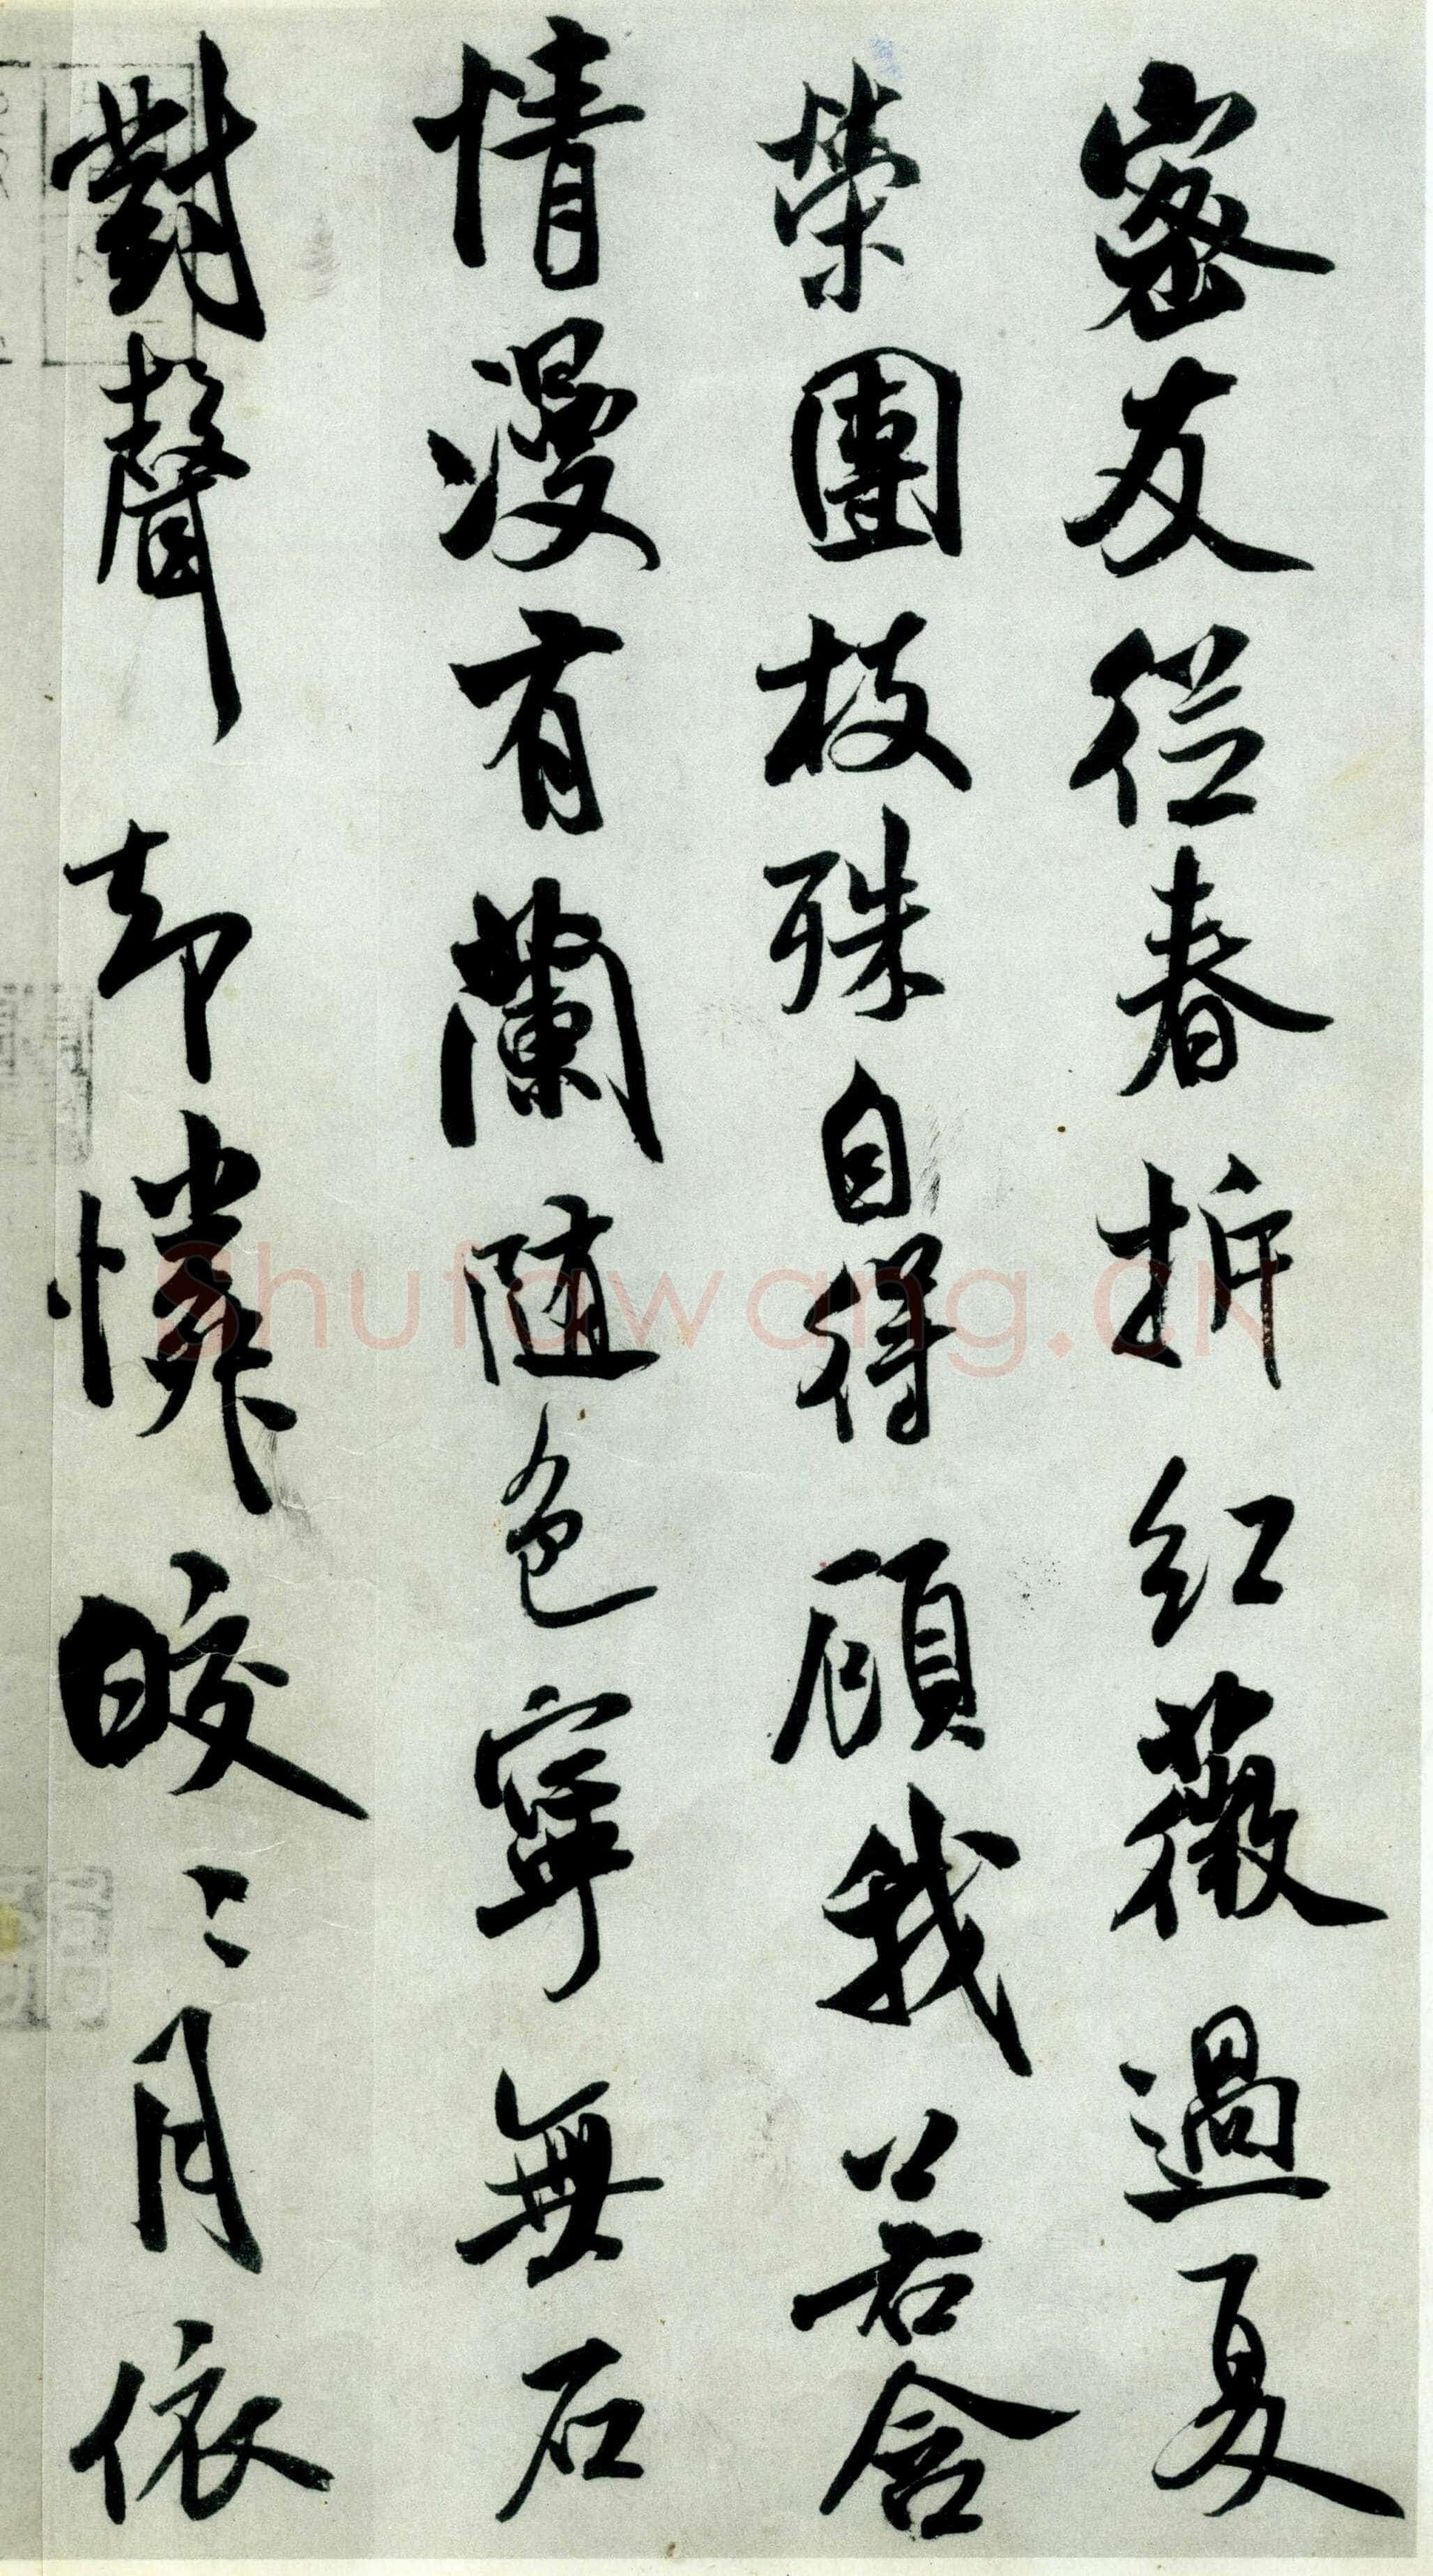 密友從春拆紅薇過夏
榮團枝殊自得顧我若含
情漫有蘭隨色寧無石
對聲却憐皎〻月依
Shufawang.CN